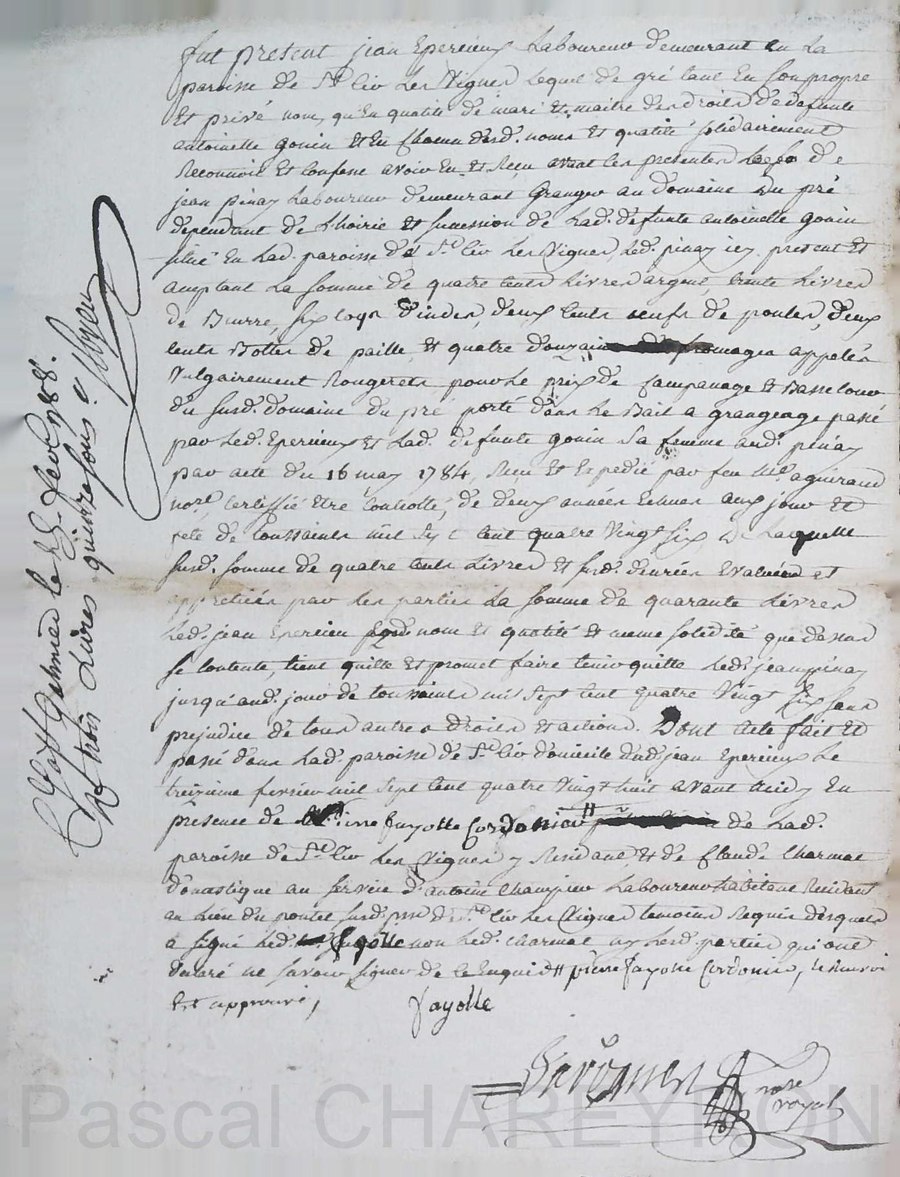 fut present jean Epercieux Laboureur demeurant en La
paroisse de St. Cir Les Vignes Lequel de gré tant En Son propre
Et privé nom, qu'en qualité de mari Et maitre des droits de defunte
antoinelle gonin Et En chacun desd. noms et qualité solidairement
Reconnoit Et Confesse avoir Eu et Recu avant Les presentes de
jean pinay Laboureur demeurant Granger au domaine Du pré
dependant de L'hoirie et succession de Lad. defunte antoinelle gonin
situé En Lad. paroisse de St. Cir Les Vignes Led. pinay icy present Et
aceptant La somme de quatre cents Livres argent, trente Livres
de Burre, six coqs d'indes, deux cents oeufs de poules, deux
cents Bottes de paille, et quatre douzaines fromages appelés
Vulgairement Rougerets pour Le prix de Campanage et Bassecour
du susd. domaine du pré porté dans Le Bail a grangeage passé
par Led. Epercieux et Lad. defunte gonin Sa femme aud. pinay
par acte du 16 may 1784, Recu Et Expedié par feu Me. aguiraud
nore. Certiffié Etre Controllé, de deux années Echues aux jour et
fete de toussaints mil Sept Cent quatre Vingt Six De Laquelle
susd. somme de quatre cents Livres et susd. denrées Evaluées et
appretiées par Les parties La somme de quarante Livres
Led. jean Epercieu Esqd. nom et qualité et meme solidité que dessus
se contente, tient quitte et promet faire tenir quitte Led. jean pinay
jusqu'aud. jour de toussaints mil Sept Cent quatre Vingt Six sans
prejudice de tous autres droits et actions. Dont acte fait Et
passé dans Lad. paroisse de St. Cir domicile dud. jean Epercieux Le
treizieme fevrier mil Sept Cent quatre Vingt huit avant midy En
presence de pierre fayolle Cordonier de Lad.
paroisse de St. Cir Les Vignes y Residant Et de Claude Charmat
domestique au service d'antoine Champier Laboureur habitant Residant
au Lieu du pontet susd. psse de St. Cir Les Vignes temoins Requis desquels
a signé Led. fayolle non Led. Charmat ny Lesd. parties qui ont
declaré ne savoir signer de ce Enquis # pierre fayolle Cordonier, Le Renvoi
Est approuvé,
fayolle
nore
royal
a st Galmier le 25 fevr. 1788.
Rç trois Livres quinze sous.
Pascal CHAREYRON